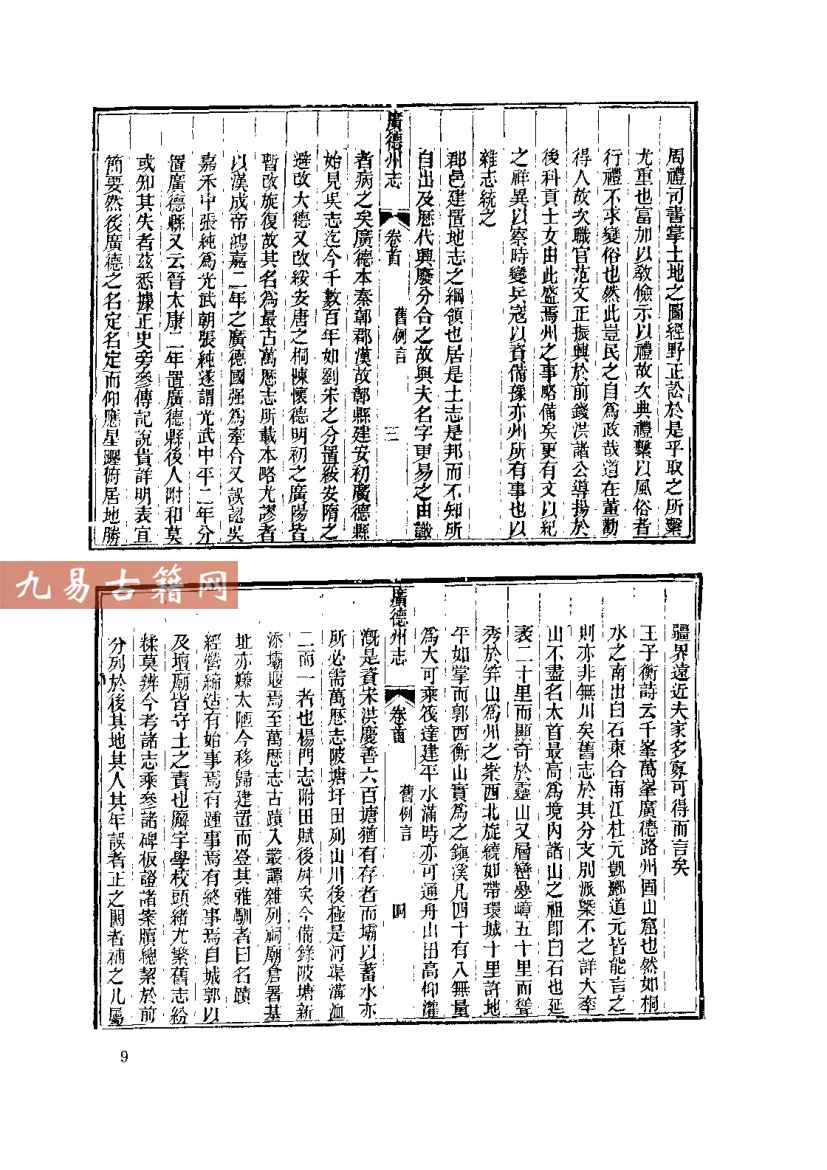 周禮司書掌土地之圖經野正訟於是乎取之所繫
尤重也富加以敎儉示以禮故次典禮繫以風俗者
行禮不求變俗也然此豈民之自爲政哉道在董勸
得人故次職官范文正振興於前錢洪諸公導揚於
後科貢士女由此盛焉州之事略備矣更有文以紀
之祥異以察時變兵寇以資備豫亦州所有事也以
雜志統之
郡邑建置地志之綱領也居是土志是邦而不知所
自出及歷代興廢分合之故與夫名字更易之由識
廣德州志 卷首 舊例言 三
者病之矣廣德本秦鄣郡漢故鄣縣建安初廣德縣
始見吳志迄今千數百年如劉宋之分置綏安隋之
避改大德又改綏安唐之桐陳懷德明初之廣陽皆
暫改旋復故其名爲最古萬歷志所載本略尤謬者
以漢成帝鴻嘉二年之廣德國强爲牽合又誤認吳
嘉禾中張純爲光武朝張純遂謂光武中平二年分
置廣德縣又云晉太康二年置廣德縣後人附和莫
或知其失者茲悉據正史旁參傳記說貴詳明表宜
簡要然後廣德之名定名定而仰應星躔俯居地勝
九易古籍网
疆界遠近夫家多寡可得而言矣
王子衡詩云千峯萬峯廣德路州固山窟也然如桐
水之南出白石東合南江杜元凱酈道元皆能言之
則亦非無川矣舊志於其分支別派槩不之詳大率
山不盡名太首最高爲境內諸山之祖卽白石也延
袤二十里而顯奇於靈山又層巒疊嶂五十里而聳
秀於笄山爲州之案西北旋繞如帶環城十里許地
平如掌而郭西衡山實爲之鎭溪凡四十有八無量
爲大可乘筏達建平水滿時亦可通舟山田高仰灌
廣德州志 卷首 舊例言 四
漑是資宋洪慶善六百塘猶有存者而壩以蓄水亦
所必需萬歷志陂塘圩田列山川後極是河渠溝洫
二而一者也楊門志附田賦後舛矣今備錄陂塘新
添壩堰焉至萬歷志古蹟入叢譚雜列祠廟倉署基
址亦嫌太陋今移歸建置而登其雅馴者曰名蹟
經營締造有始事焉有踵事焉有終事焉自城郭以
及壇廟皆守土之責也廨宇學校頭緒尤繁舊志紛
糅莫辨今考諸志乘參諸碑板證諸案牘總絜於前
分列於後其地其人其年誤者正之闕者補之凡屬
9